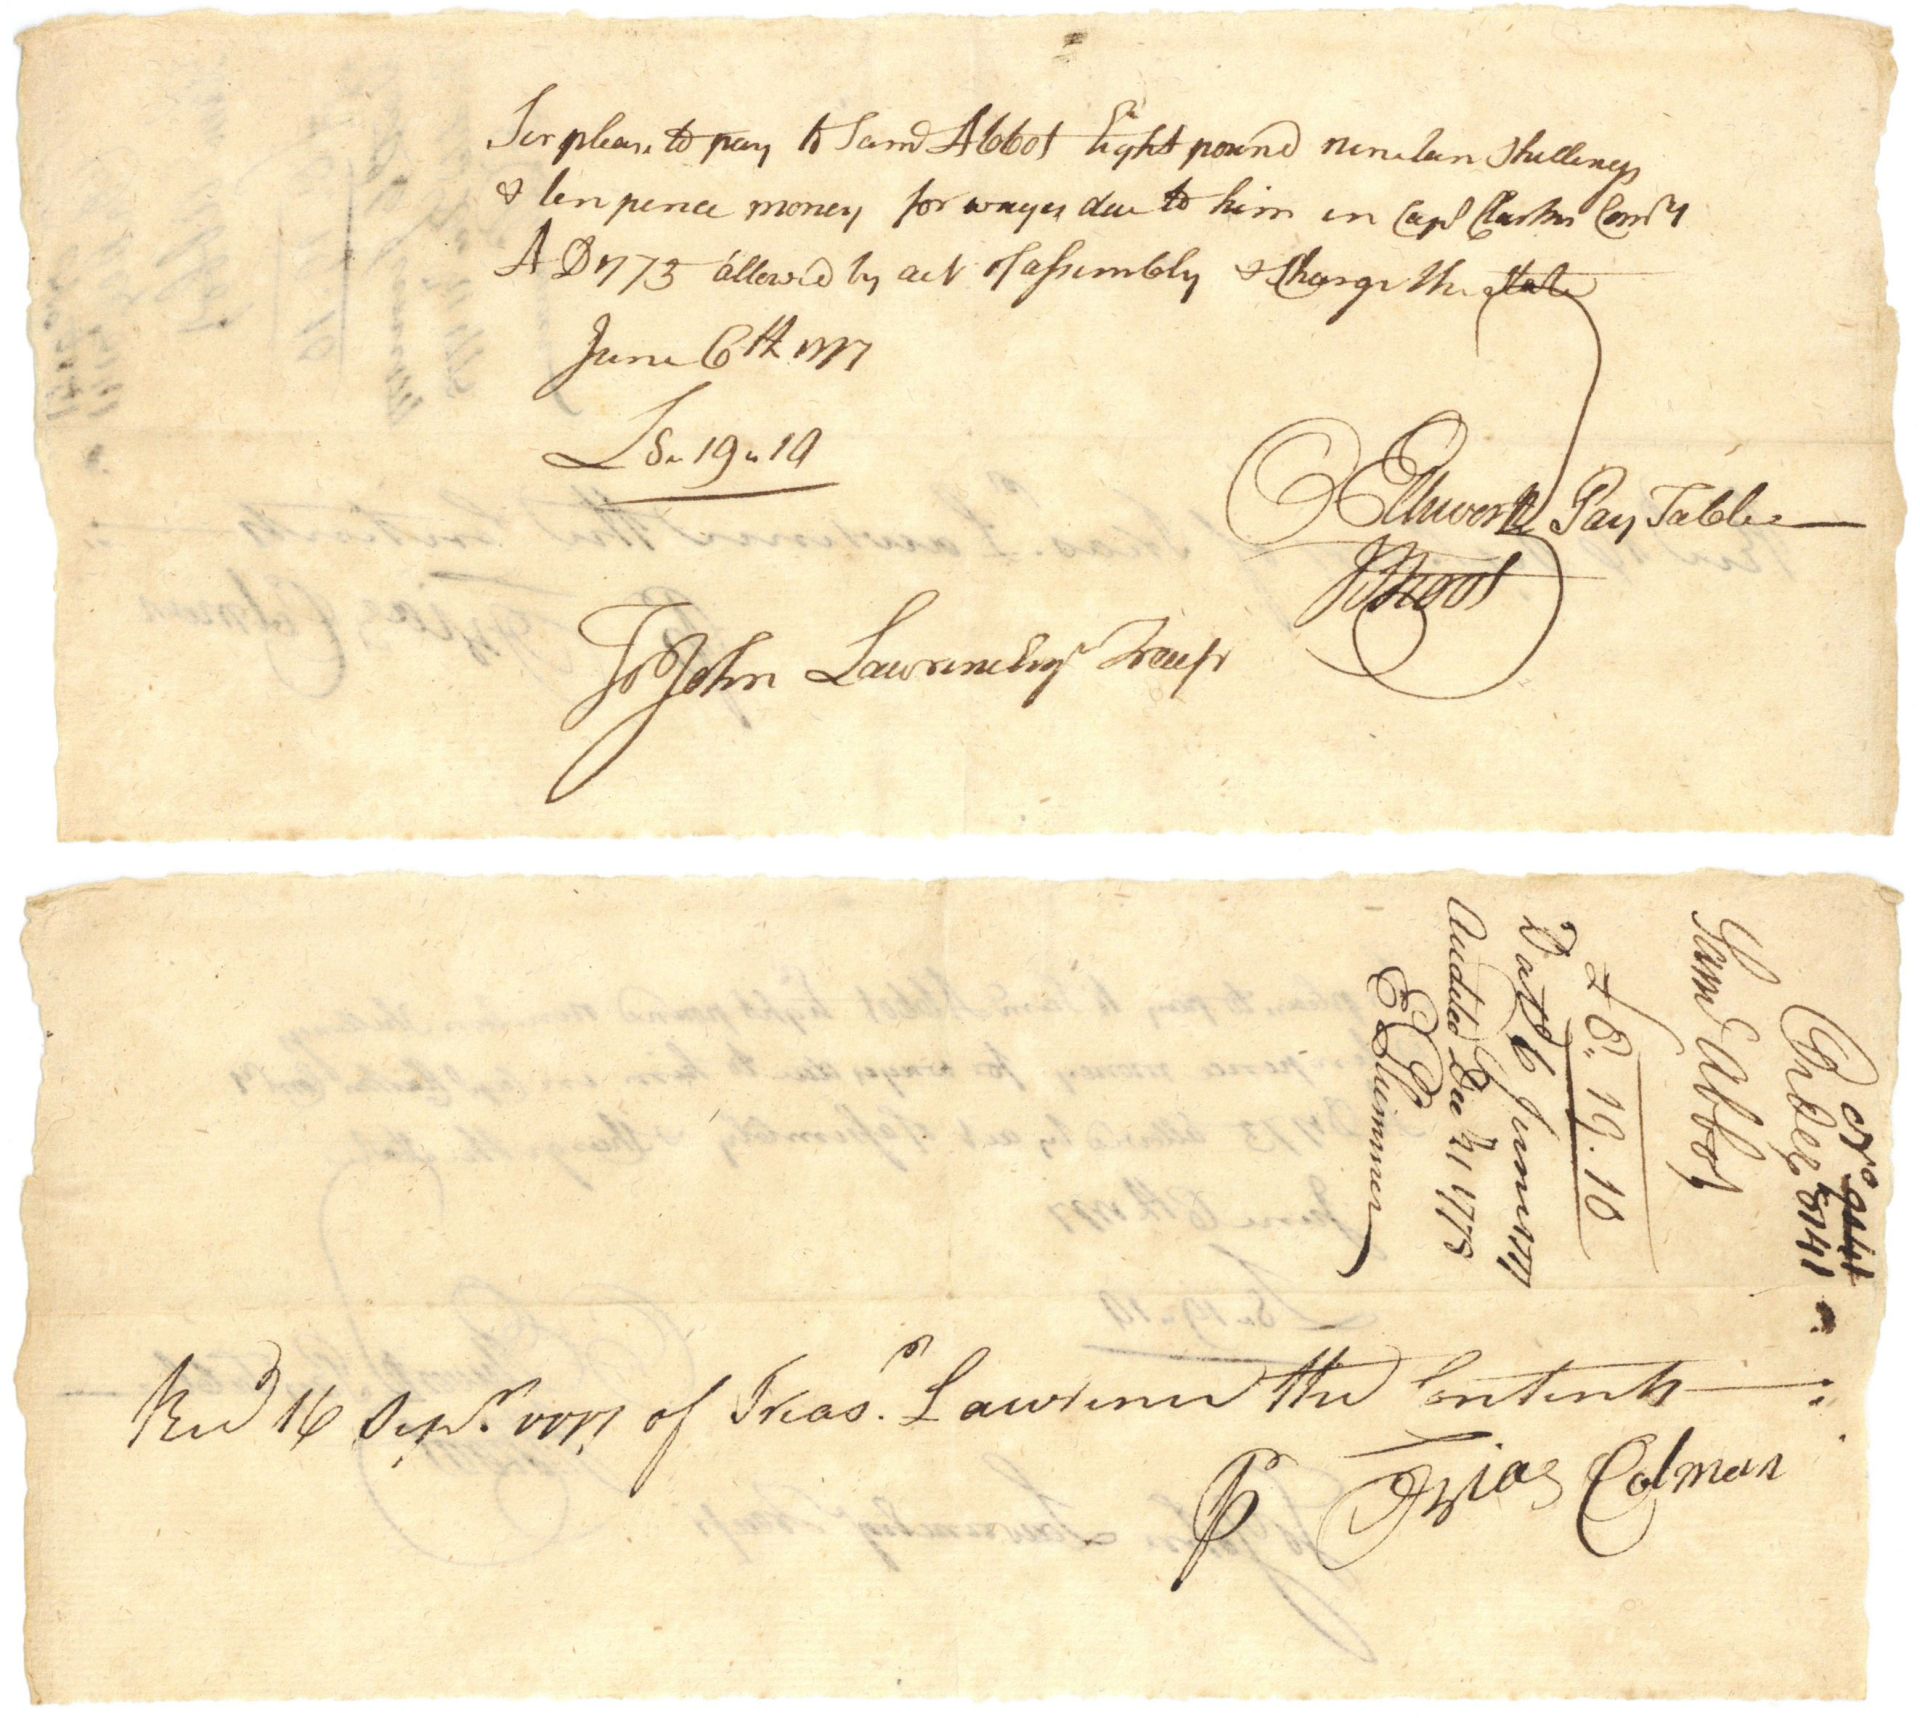 Sir please to pay to Saml Abbot Eight pound nineteen shillings
& ten pence money for wages due to him in Capt Clarks Comy
A D 1775 allowed by act of assembly & Charge the state
June 6th 1777
£8 " 19 " 10
O Ellsworth Pay Table
J Root
To John Lawrence Esqr Treasr
Order
Saml Abbot
£8. 19. 10
Datd 6 June 1777
Audited Decr 1 1778
E Skinner
Recd 16 Sepr. 1777 of Treasr. Lawrence the Contents
Pr Ozias Colman